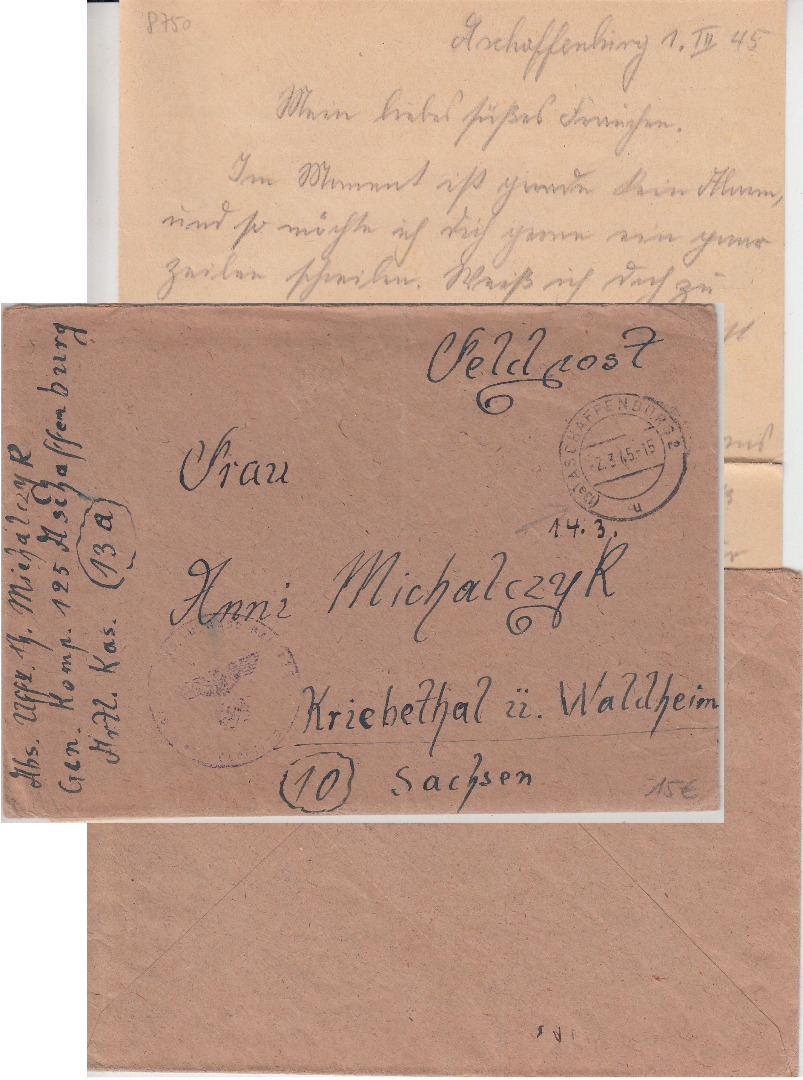 8750
Aschaffenburg 1. III 45
Mein liebes süßes Frauchen.
Im Moment ist gerade kein Alarm,
und so möchte ich Dich gerne ein paar
Zeilen schreiben. Weiß ich doch zu
Feldpost
(13a) ASCHAFFENBURG 2
-2.3.45-15
n
14.3.
Frau
Anni Michalczyk
Kriebethal ü. Waldheim
(10) Sachsen
15€
Abs. Uffz. H. Michalczyk
Gen. Komp. 125 Aschaffenburg
Artl. Kas. (13a)